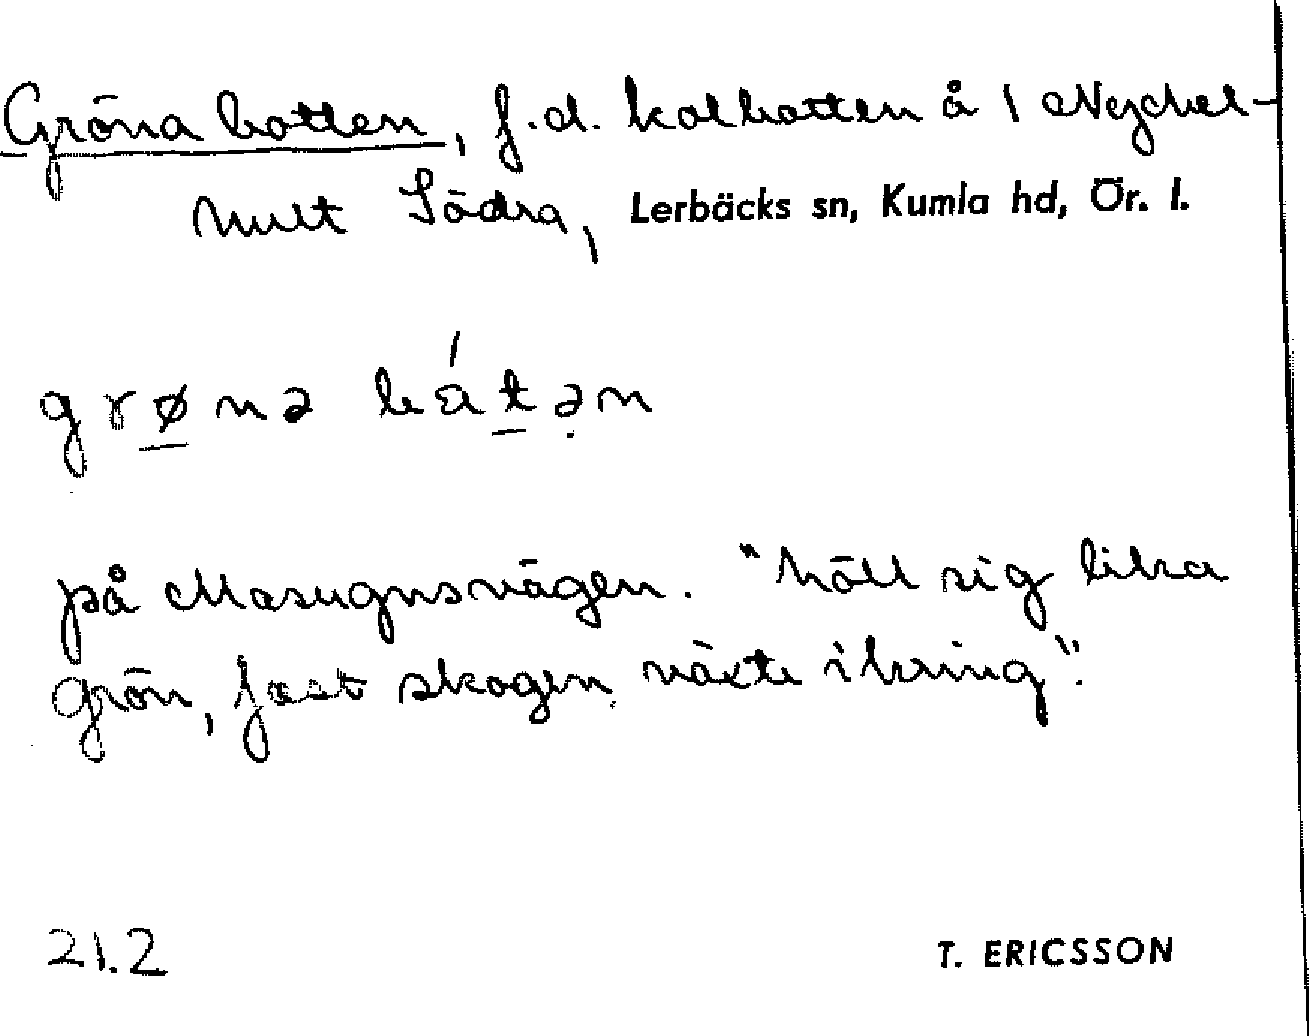 Gröna botten, f.d. kolbotten å 1 Nyckel-
hult Södra, Lerbäcks sn, Kumla hd, Ör. l.
grønə båtən
på Masugnsvägen. "höll sig lika
grön, fast skogen växte ikring".
21.2 T. ERICSSON